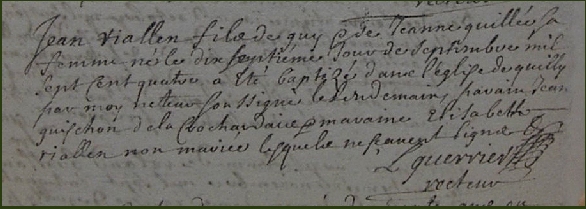 Jean viallen fils de guy et de Jeanne quillée sa
femme né le dix septiéme Jour de Septembre mil
sept cent quatre a eté baptizé dans l'églize de quilly
par moy recteur soussigné le lendemain, parain Jean
guischon de la Rochardaie maraine Elisabeth
viallen non mariée lesquels ne scavent signé
guerrier
recteur